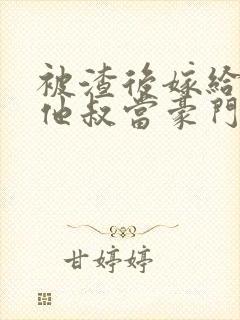 被渣後嫁給
他叔當豪門
甘婷婷